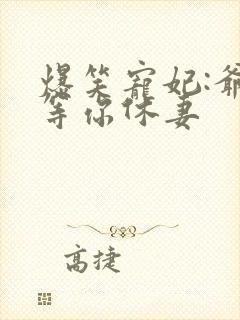 爆笑宠妃:爷
等你休妻
高捷